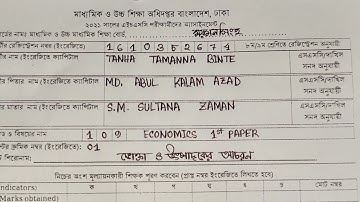 মাধ্যমিক ও উচ্চ শিক্ষা অধিদপ্তর বাংলাদেশ, ঢাকা
২০২১ সালের এইচএসসি পরীক্ষার্থীদের অ্যাসাইনমেন্ট
বোর্ডের নামঃ মাধ্যমিক ও উচ্চ মাধ্যমিক শিক্ষা বোর্ড, ময়মনসিংহ
র্থীর রেজিস্ট্রেশন নম্বর (ইংরেজিতে) 1610352674 ৮ম/৯ম শ্রেণিতে রেজিস্ট্রেশন অনুযায়ী
র্থীর নাম (ইংরেজিতে ক্যাপিটাল TANHA TAMANNA BINTE এসএসসি/দাখিল সনদ অনুযায়ী
র্থীর পিতার নাম (ইংরেজিতে ক্যাপিটাল MD. ABUL KALAM AZAD এসএসসি/দাখিল সনদ অনুযায়ী
র্থীর মাতার নাম (ইংরেজিতে ক্যাপিটাল S.M. SULTANA ZAMAN এসএসসি/দাখিল সনদ অনুযায়ী
ও বিষয়ের নাম 109 ECONOMICS 1st PAPER
ন্টের ক্রমিক নম্বর (ইংরেজিতে): 01
ন্টের শিরোনাম: ভোক্তা ও উৎপাদকের আচরণ
নিচের অংশ মূল্যায়নকারী শিক্ষক পূরণ করবেন (প্রাপ্ত নম্বর ইংরেজিতে লিখতে হবে)
ndicators) ক খ গ ঘ ঙ চ মোট নম্বর
Marks obtained)